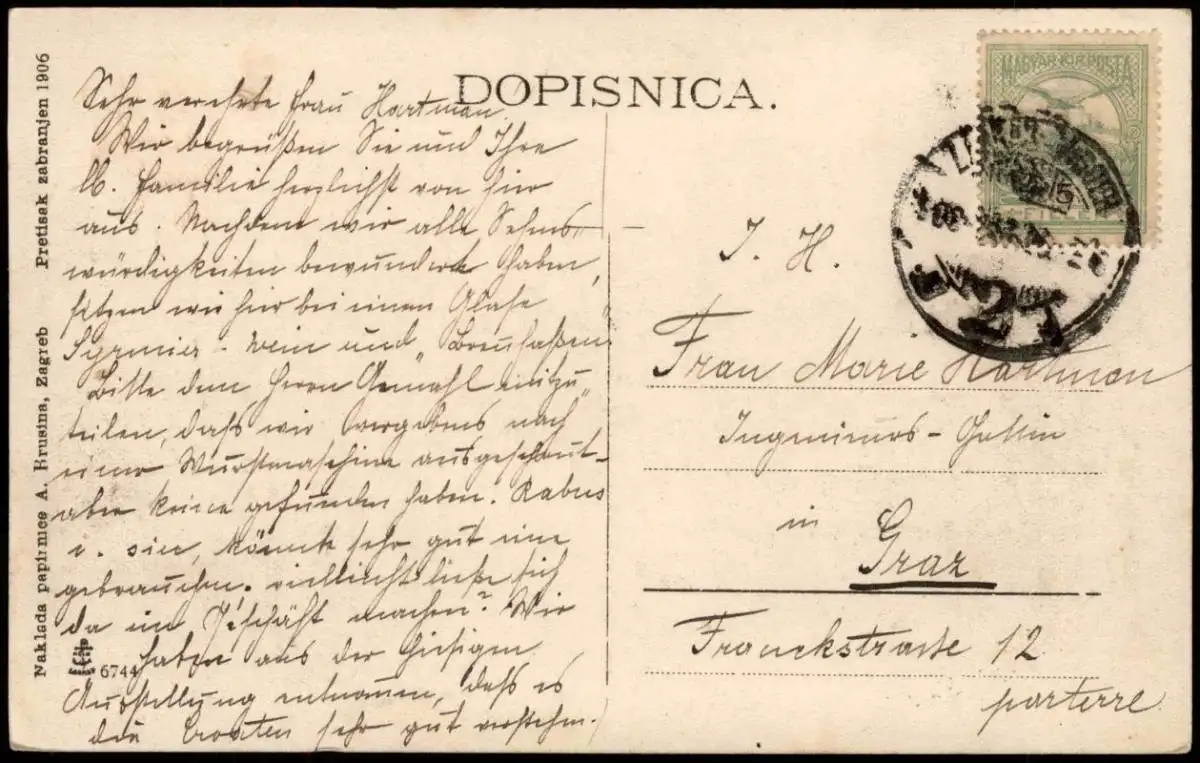 DOPISNICA.
Naklada papirnice A. Brusina, Zagreb Pretisak zabranjen 1906
6744
MAGYAR KIR. POSTA
Sehr verehrte Frau Hartman
Wir begrüßen Sie und Ihre
lb. Familie herzlichst von hier
aus. Nachdem wir alle Sehens-
würdigkeiten bewundert haben,
sitzen wir hier bei einem Glase
Syrmier-Wein und
Bitte dem Herrn Gemahl mitzu-
teilen, dass wir vergebens nach
einer Wurstmaschine ausgeschaut-
aber keine gefunden haben.
könnte sehr gut eine
gebrauchen. vielleicht ließe sich
da ein Geschäft machen? Wir
haben aus der hiesigen
Ausstellung entnommen, dass es
die Croaten sehr gut verstehen.
I. H.
Frau Marie Hartman
Ingenieurs-Gattin
in
Graz
Franckstrasse 12
parterre